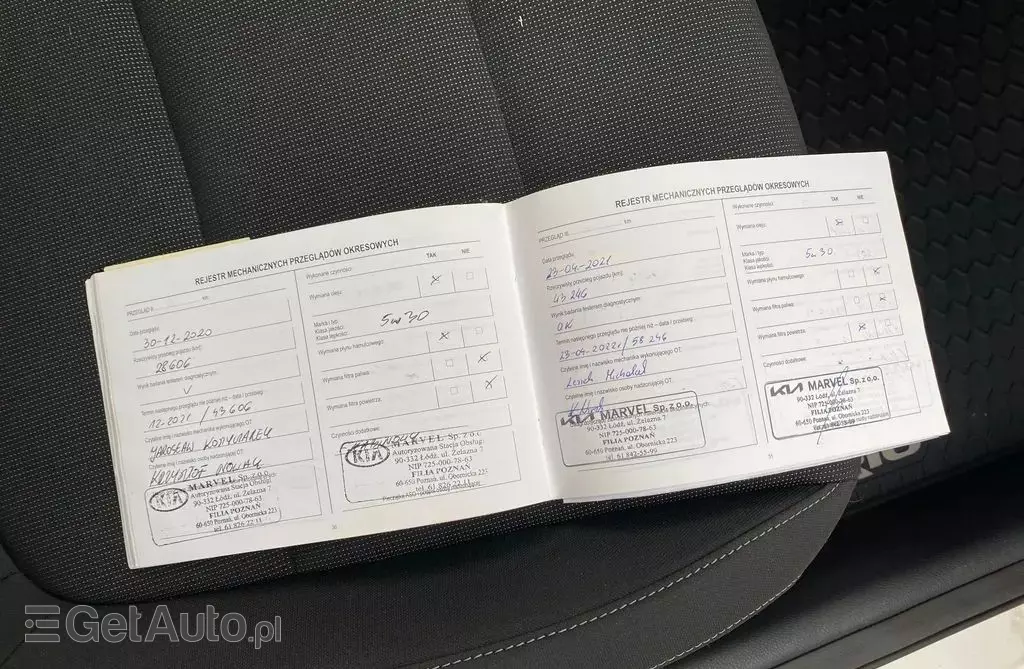 REJESTR MECHANICZNYCH PRZEGLĄDÓW OKRESOWYCH
PRZEGLĄD II
km
Data przeglądu:
30-12-2020
Rzeczywisty przebieg pojazdu [km]:
28606
Wynik badania testerem diagnostycznym:
Termin następnego przeglądu nie później niż – data / przebieg:
12.2021 / 43606
Czytelne imię i nazwisko mechanika wykonującego OT:
JAROSŁAW
Czytelne imię i nazwisko osoby nadzorującej OT:
KRZYSZTOF NOWAK
KIA
MARVEL Sp. z o.o.
Autoryzowana Stacja Obsługi
90-332 Łódź, ul. Żelazna 7
NIP 725-000-78-63
FILIA POZNAŃ
60-650 Poznań, ul. Obornicka 223
tel. 61 826 22 11
Wykonane czynności:
TAK
NIE
Wymiana oleju:
Marka i typ:
Klasa jakości:
Klasa lepkości:
5w30
Wymiana płynu hamulcowego:
Wymiana filtra paliwa:
Wymiana filtra powietrza:
Czynności dodatkowe:
KIA
MARVEL Sp. z o.o.
Autoryzowana Stacja Obsługi
90-332 Łódź, ul. Żelazna 7
NIP 725-000-78-63
FILIA POZNAŃ
60-650 Poznań, ul. Obornicka 223
tel. 61 826 22 11
REJESTR MECHANICZNYCH PRZEGLĄDÓW OKRESOWYCH
PRZEGLĄD III
km
Data przeglądu:
23-04-2021
Rzeczywisty przebieg pojazdu [km]:
43 246
Wynik badania testerem diagnostycznym:
OK
Termin następnego przeglądu nie później niż – data / przebieg:
23-04-2022r / 58 246
Czytelne imię i nazwisko mechanika wykonującego OT:
Lesich Michał
Czytelne imię i nazwisko osoby nadzorującej OT:
KIA MARVEL Sp. z o.o.
90-332 Łódź, ul. Żelazna 7
NIP 725-000-78-63
FILIA POZNAŃ
60-650 Poznań, ul. Obornicka 223
tel. 61 842-55-99
Wykonane czynności:
TAK
NIE
Wymiana oleju:
Marka i typ:
Klasa jakości:
Klasa lepkości:
5w30
Wymiana płynu hamulcowego:
Wymiana filtra paliwa:
Wymiana filtra powietrza:
Czynności dodatkowe:
KIA MARVEL Sp. z o.o.
90-332 Łódź, ul. Żelazna 7
NIP 725-000-78-63
FILIA POZNAŃ
60-650 Poznań, ul. Obornicka 223
11
GetAuto.pl